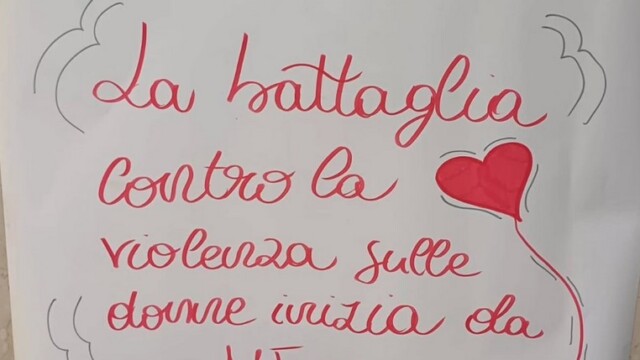 La battaglia
contro la
violenza sulle
donne inizia da